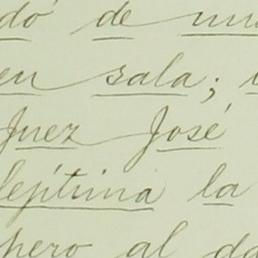 de
en sala;
Juez José
legítima la
pero al